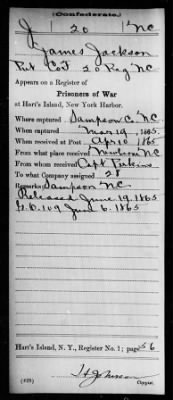 (Confederate.)
J 20 NC
James Jackson
Pvt Co I 20 Reg NC
Appears on a Register of
Prisoners of War
at Hart's Island, New York Harbor.
Where captured Sampson Co, NC
When captured Mar 19, 1865.
When received at Post Apr 10 1865
From what place received Newbern NC
From whom received Capt Perkins
To what Company assigned 28
Remarks Sampson NC
Released June 19, 1865
G.O. 109 June 6, 1865
Hart's Island, N. Y., Register No. 1; page 56
Copyist.